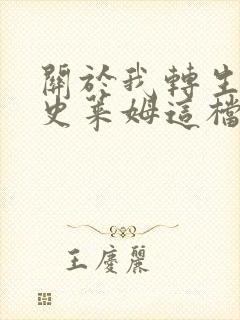 關於我轉生
史萊姆這檔
王慶麗